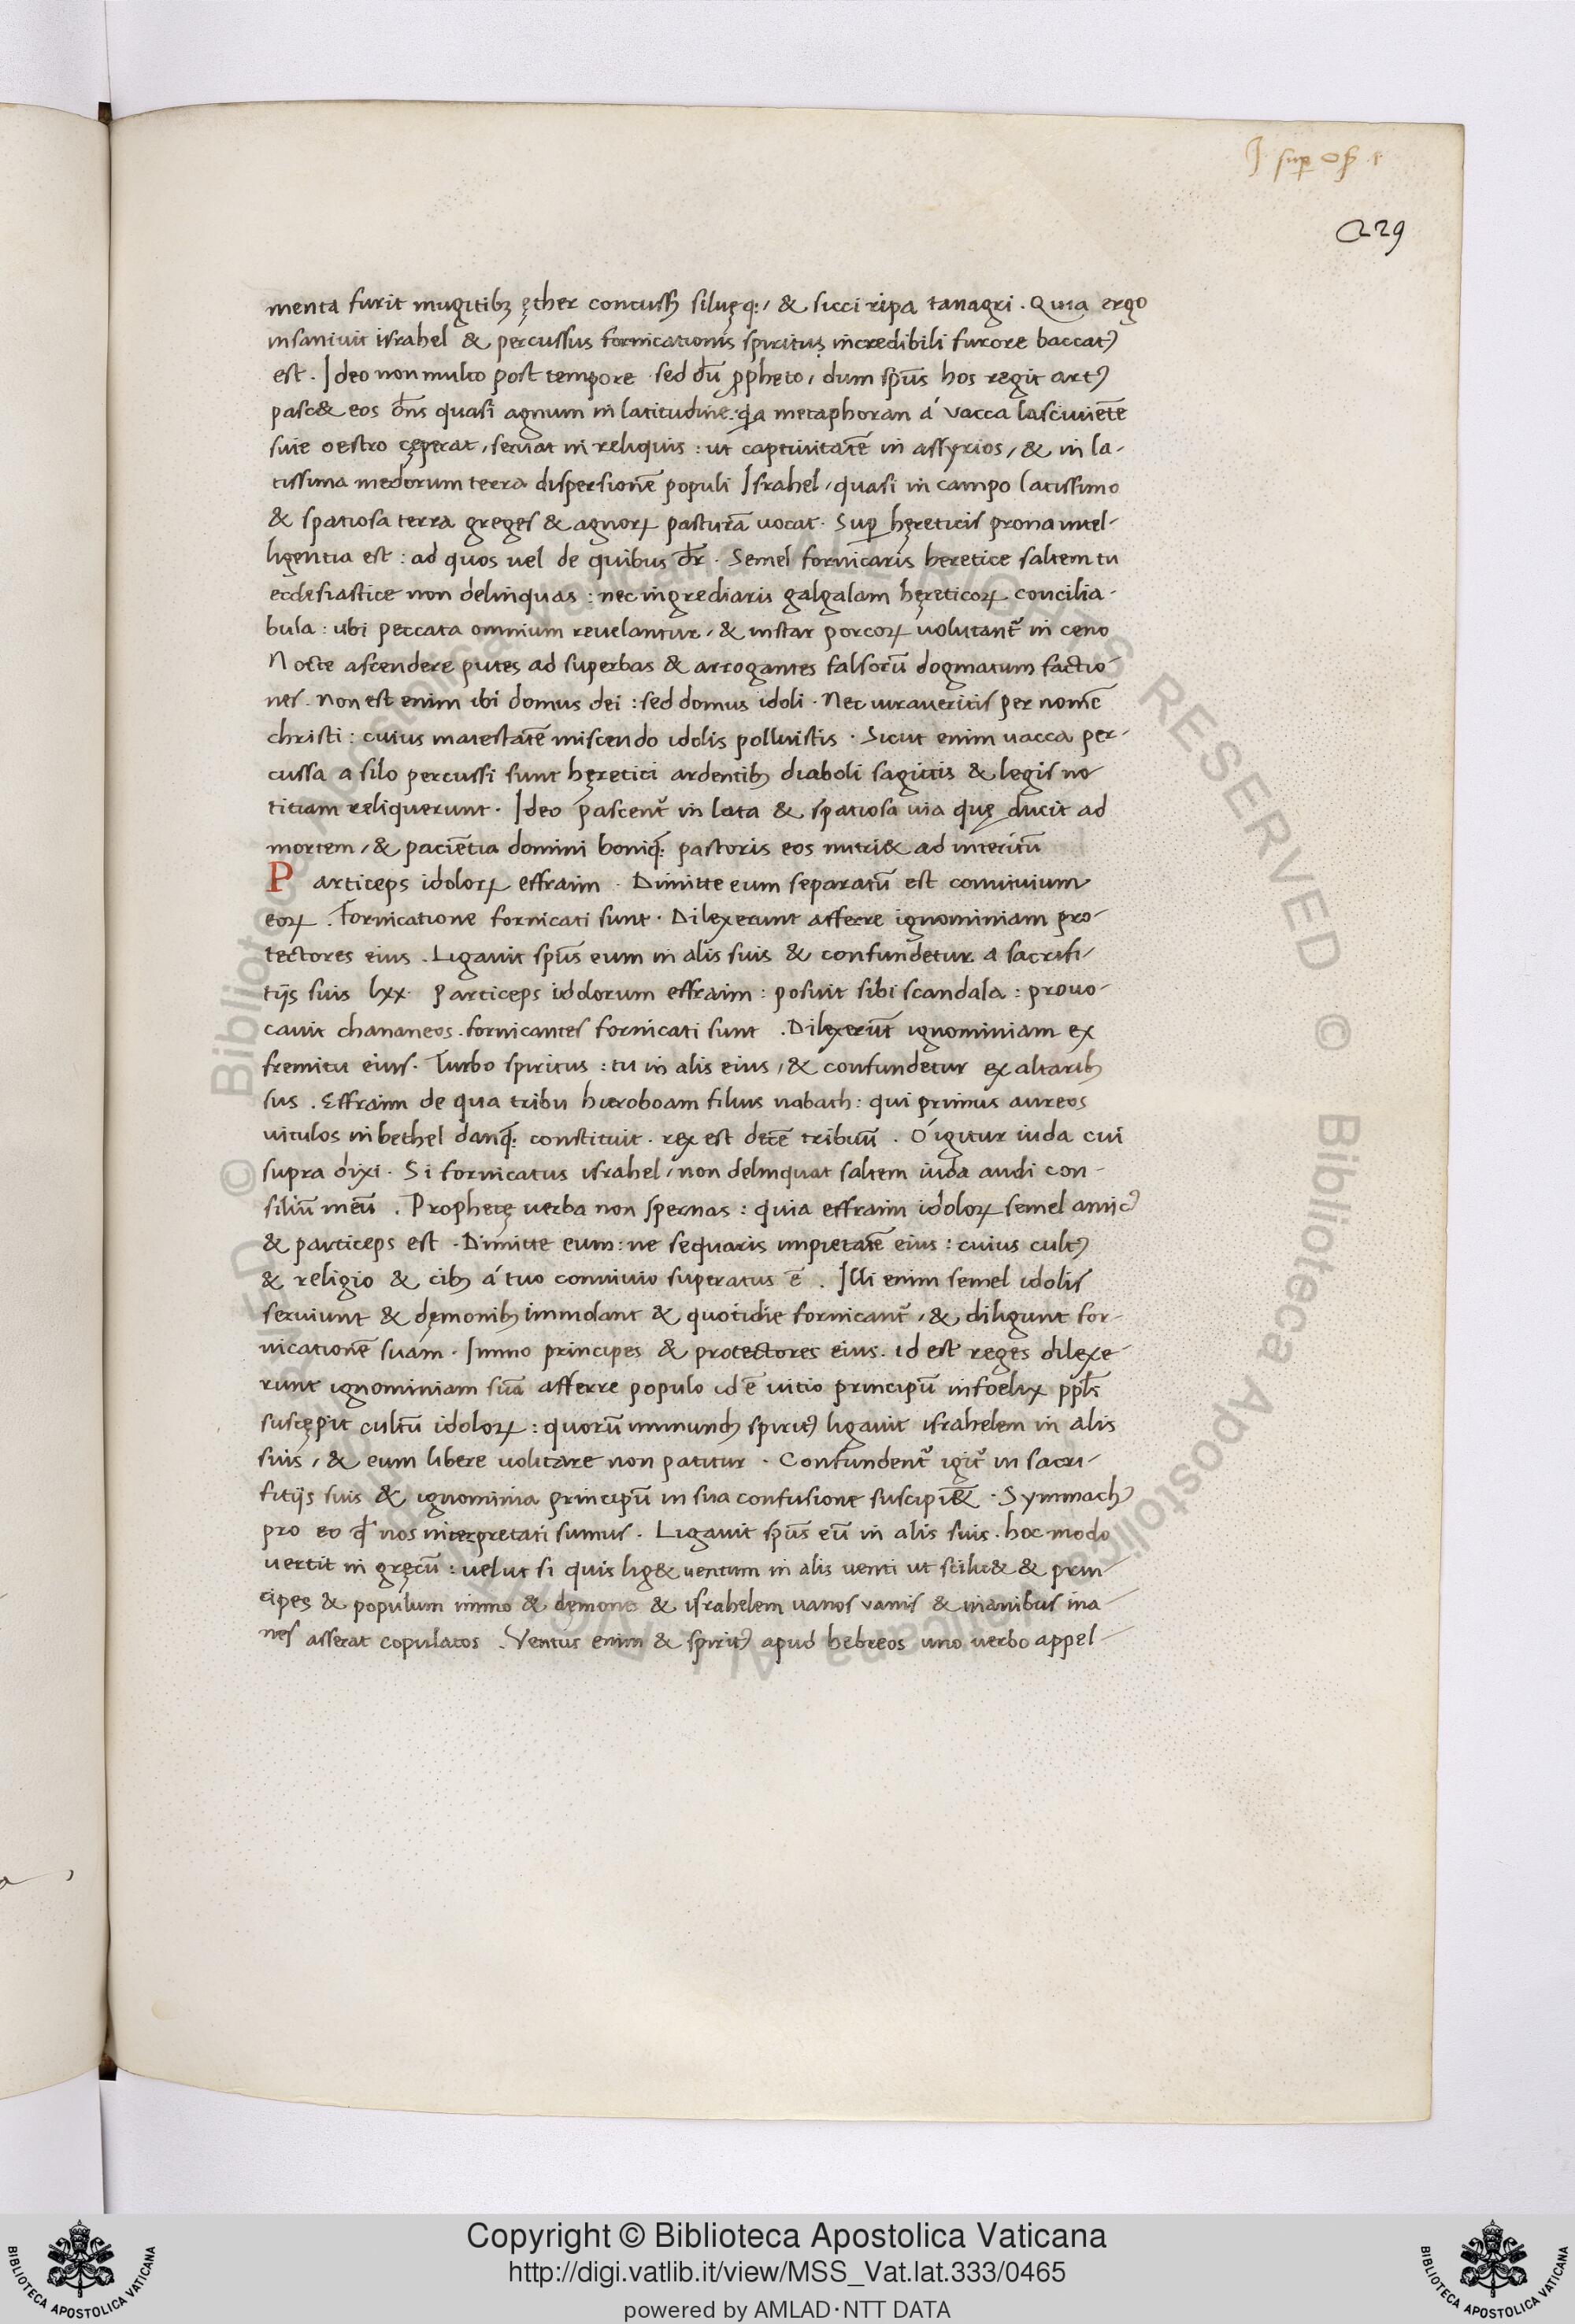 J. sup os. 1
229
menta furit mugitibꝫ ęther concussꝰ siluęq;, & sicci ripa tanagri. Quia ergo
insaniuit israhel & percussus fornicationis spiritus incredibili furore baccatꝰ
est. Ideo non multo post tempore sed dū ꝓpheto, dum spūs hos regit artꝰ
pasc& eos dn̄s quasi agnum in latitudine: qa metaphoran á vacca lasciuiētē
suie oestro cęperat, seruat in reliquis: ut captiuitatē in assyrios, & in la-
tissima medorum terra dispersionē populi Israhel, quasi in campo latissimo
& spatiosa terra greges & agnoꝝ pasturā uocat. Suꝑ hęreticis prona intel-
ligentia est: ad quos uel de quibus dr̄. Semel fornicaris heretice saltem tu
ecclesiastice non delinquas: nec ingrediaris galgalam hęreticoꝝ concilia-
bula: ubi peccata omnium reuelantur, & instar porcoꝝ uolutant᷑ in ceno
Nocte ascendere putes ad superbas & arrogantes falsorū dogmatum factio-
nes. non est enim ibi domus dei: sed domus idoli. Nec iuraueritis per nomē
christi: cuius maiestatē miscendo idolis polluistis. Sicut enim uacca per-
cussa a silo percussi sunt hęretici ardentibꝫ diaboli sagittis & legis no-
titiam reliquerunt. Ideo pascent᷑ in lata & spatiosa uia quę ducit ad
mortem, & paciētia domini boniq; pastoris eos nutri& ad interitū
Particeps idoloꝝ effraim. Dimitte eum separatū est conuiuium
eoꝝ. Fornicatione fornicati sunt. Dilexerunt afferre ignominiam pro-
tectores eius. Ligauit spūs eum in alis suis & confundetur a sacrifi-
tijs suis lxx. Particeps idolorum effraim: posuit sibi scandala: prouo-
cauit chananeos. fornicantes fornicati sunt. Dilexerūt ignominiam ex
fremitu eius. Turbo spiritus: tu in alis eius, & confundetur ex altaribꝫ
sus. Effraim de qua tribu hieroboam filius nabath: qui primus aureos
uitulos in bethel danq; constituit. rex est decē tribuū. O igitur iuda cui
supra dixi. Si fornicatus israhel, non delinquat saltem iuda audi con-
siliū meū. Prophetę uerba non spernas: quia effraim idoloꝝ semel amicꝰ
& particeps est. Dimitte eum: ne sequaris impietatē eius: cuius cultꝰ
& religio & cibꝫ á tuo conuiuio superatus ē. Illi enim semel idolis
seruiunt & dęmonibꝫ immolant & quotidie fornicant᷑, & diligunt for-
nicationē suam. Immo principes & protectores eius. id est reges dilexe-
runt ignominiam suā afferre populo id ē uitio principū infoelix ppl̄s
suscępit cultū idoloꝝ: quorū immundꝰ spiritꝰ ligauit israhelem in alis
suis, & eum libere uolitare non patitur. Confundent᷑ igit᷑ in sacri-
fitijs suis & ignominia principū in sua confusione suscipiē&. Symmachꝰ
pro eo qd̄ nos interpretati sumus. Ligauit spūs eū in alis suis. hoc modo
uertit in gręcū: uelut si quis lig& uentum in alis uenti ut scilic& & prin-
cipes & populum immo & dęmone & israhelem uanos vanis & inanibus ina-
nes asserat copulatos. Ventus enim & spiritꝰ apud hebreos uno uerbo appel-
© Biblioteca Apostolica Vaticana ALL RIGHTS RESERVED © Biblioteca Apostolica Vaticana ALL RIGHTS RESERVED
BIBLIOTECA APOSTOLICA VATICANA
Copyright © Biblioteca Apostolica Vaticana
http://digi.vatlib.it/view/MSS_Vat.lat.333/0465
powered by AMLAD·NTT DATA
BIBLIOTECA APOSTOLICA VATICANA